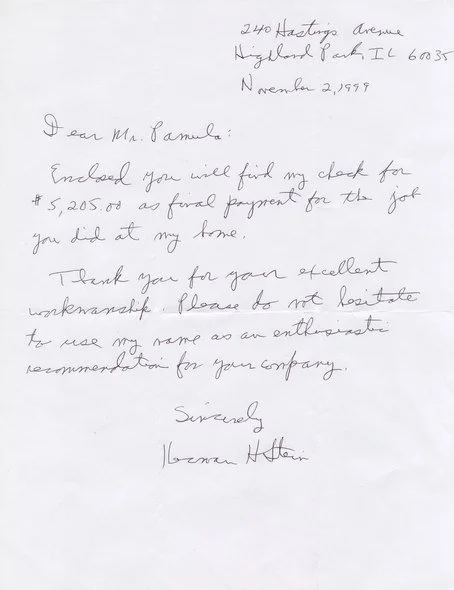 240 Hastings Avenue
Highland Park, IL 60035
November 2, 1999
Dear Mr. Pamula:
Enclosed you will find my check for
$5,205.00 as final payment for the job
you did at my home.
Thank you for your excellent
workmanship. Please do not hesitate
to use my name as an enthusiastic
recommendation for your company.
Sincerely
Herman H Stein